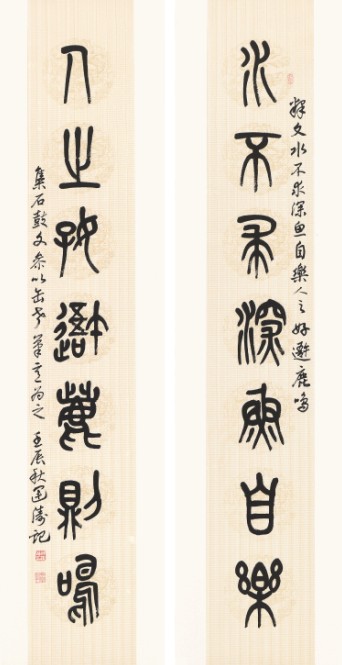 水不求深魚自樂
人之好避麀則鳴
釋文水不求深魚自樂人之好避鹿鳴
集石鼓文參以缶老筆意為之 壬辰秋運濤記